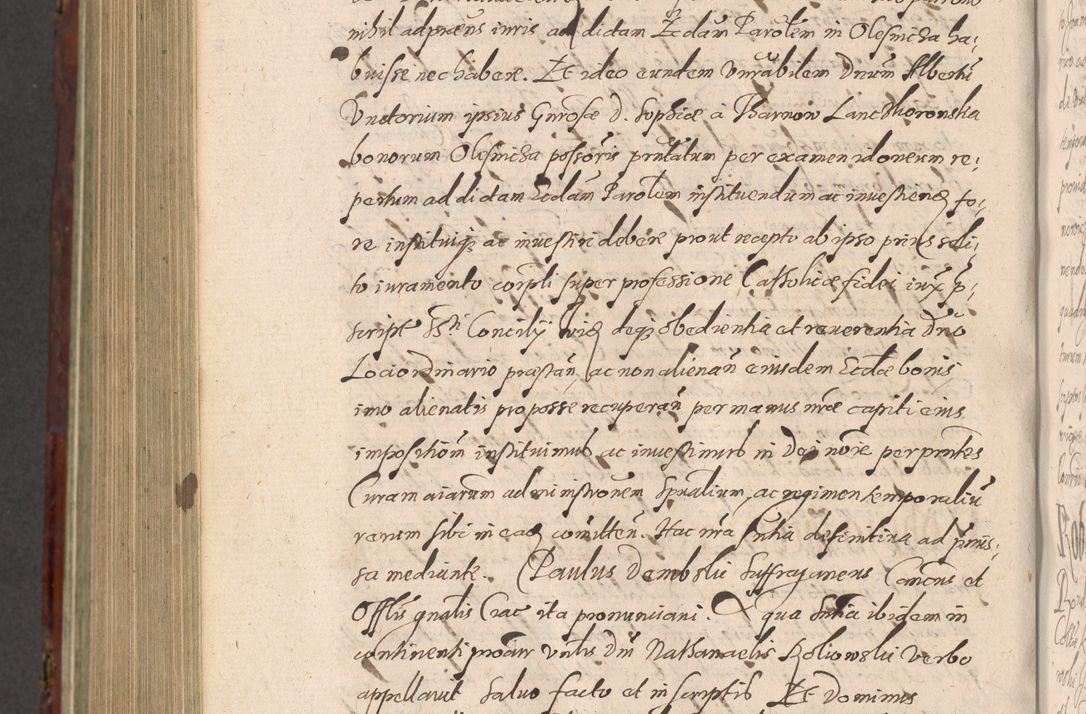 nihil ad pnens iuris ad dictam Ecclam Parolem in Olesnicza ha:
buisse nec habere. Et ideo eundem Vnrabilem Dnum Albertu
Vnctorium ipsius Gnrosae D. Sophiae a Tharnow Lanczkoronska
bonorum Olesnicza possoris pntatum per examen idoneum re:
pertum ad dictam Ecclam Parolem instituendum ac investiend fo:
re instituiq ac investiri debere prout recepto ab ipso prius soli:
to iuramento corpli super professione Catholicae fidei iux p:
script Sti Concilij deq obedientia et reverentia dno
Loci ordinario praestan ac non alienan eiusdem Eccae bonis
imo alienatis pro posse recuperan per manus nrae capiti eius
imposition instituimus ac investimus in Dei noie per pntes
Curam aiarum administronem spualium, ac regimen temporaliu
rerum sibi in ea comitten. Hac nra sntia definitiua ad pmis:
sa mediante. Paulus Dembski Suffraganeus Cancus et
Offlis gnalis Crac ita pronunciani. A qua sntia ibidem in
continenti procur Vnlis Dni Nathanaelis Koliowski Verbo
appellavit salvo facto et in scriptis Et Dominus